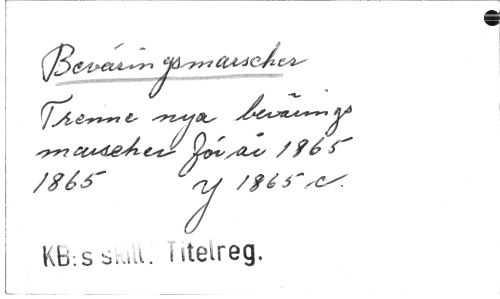 Beväringsmarscher
Trenne nya bevärings
marscher för år 1865
1865 Y 1865 c.
KB:s skill. Titelreg.